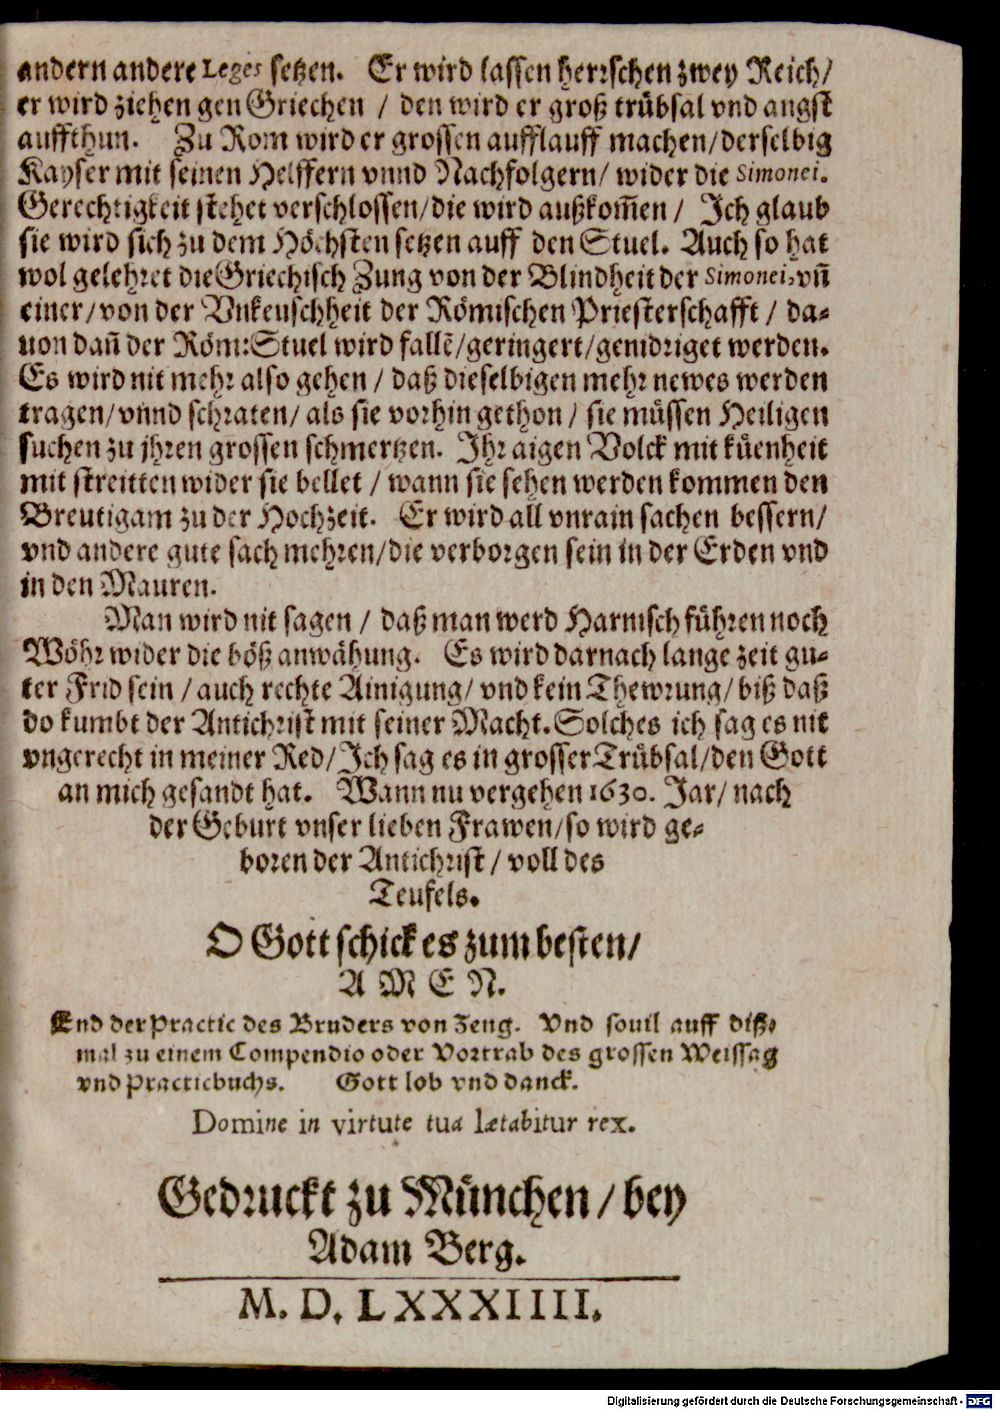 andern andere Leges setzen. Er wird lassen herrschen zwey Reich/
er wird ziehen gen Griechen / den wird er groß trübsal vnd angst
auffthun. Zu Rom wird er grossen aufflauff machen/derselbig
Kayser mit seinen Helffern vnnd Nachfolgern/ wider die Simonei.
Gerechtigkeit stehet verschlossen/die wird außkom̃en / Ich glaub
sie wird sich zu dem Höchsten setzen auff den Stuel. Auch so hat
wol gelehret die Griechisch Zung von der Blindheit der Simonei, vñ
einer/von der Vnkeuschheit der Römischen Priesterschafft / da-
uon dañ der Röm: Stuel wird fallẽ/geringert/genidriget werden.
Es wird nit mehr also gehen / daß dieselbigen mehr newes werden
tragen/vnnd schraten/ als sie vorhin gethon / sie müssen Heiligen
suchen zu jhren grossen schmertzen. Ihr aigen Volck mit küenheit
mit streitten wider sie bellet / wann sie sehen werden kommen den
Breutigam zu der Hochzeit. Er wird all vnrain sachen bessern/
vnd andere gute sach mehren/die verborgen sein in der Erden vnd
in den Mauren.
Man wird nit sagen / daß man werd Harnisch führen noch
Wöhr wider die böß anwähung. Es wird darnach lange zeit gu-
ter Frid sein / auch rechte Ainigung/ vnd kein Thewrung/ biß daß
do kumbt der Antichrist mit seiner Macht. Solches ich sag es nit
vngerecht in meiner Red/ Ich sag es in grosser Trübsal/den Gott
an mich gesandt hat. Wann nu vergehen 1630. Jar/ nach
der Geburt vnser lieben Frawen/so wird ge-
boren der Antichrist / voll des
Teufels.
O Gott schick es zum besten/
A M E N.
End der Practic des Bruders von Zeng. Vnd souil auff diß-
mal zu einem Compendio oder Vortrab des grossen Weissag
vnd Practicbuchs. Gott lob vnd danck.
Domine in virtute tua lætabitur rex.
Gedruckt zu München / bey
Adam Berg.
M. D. LXXXIIII.
Digitalisierung gefördert durch die Deutsche Forschungsgemeinschaft - DFG